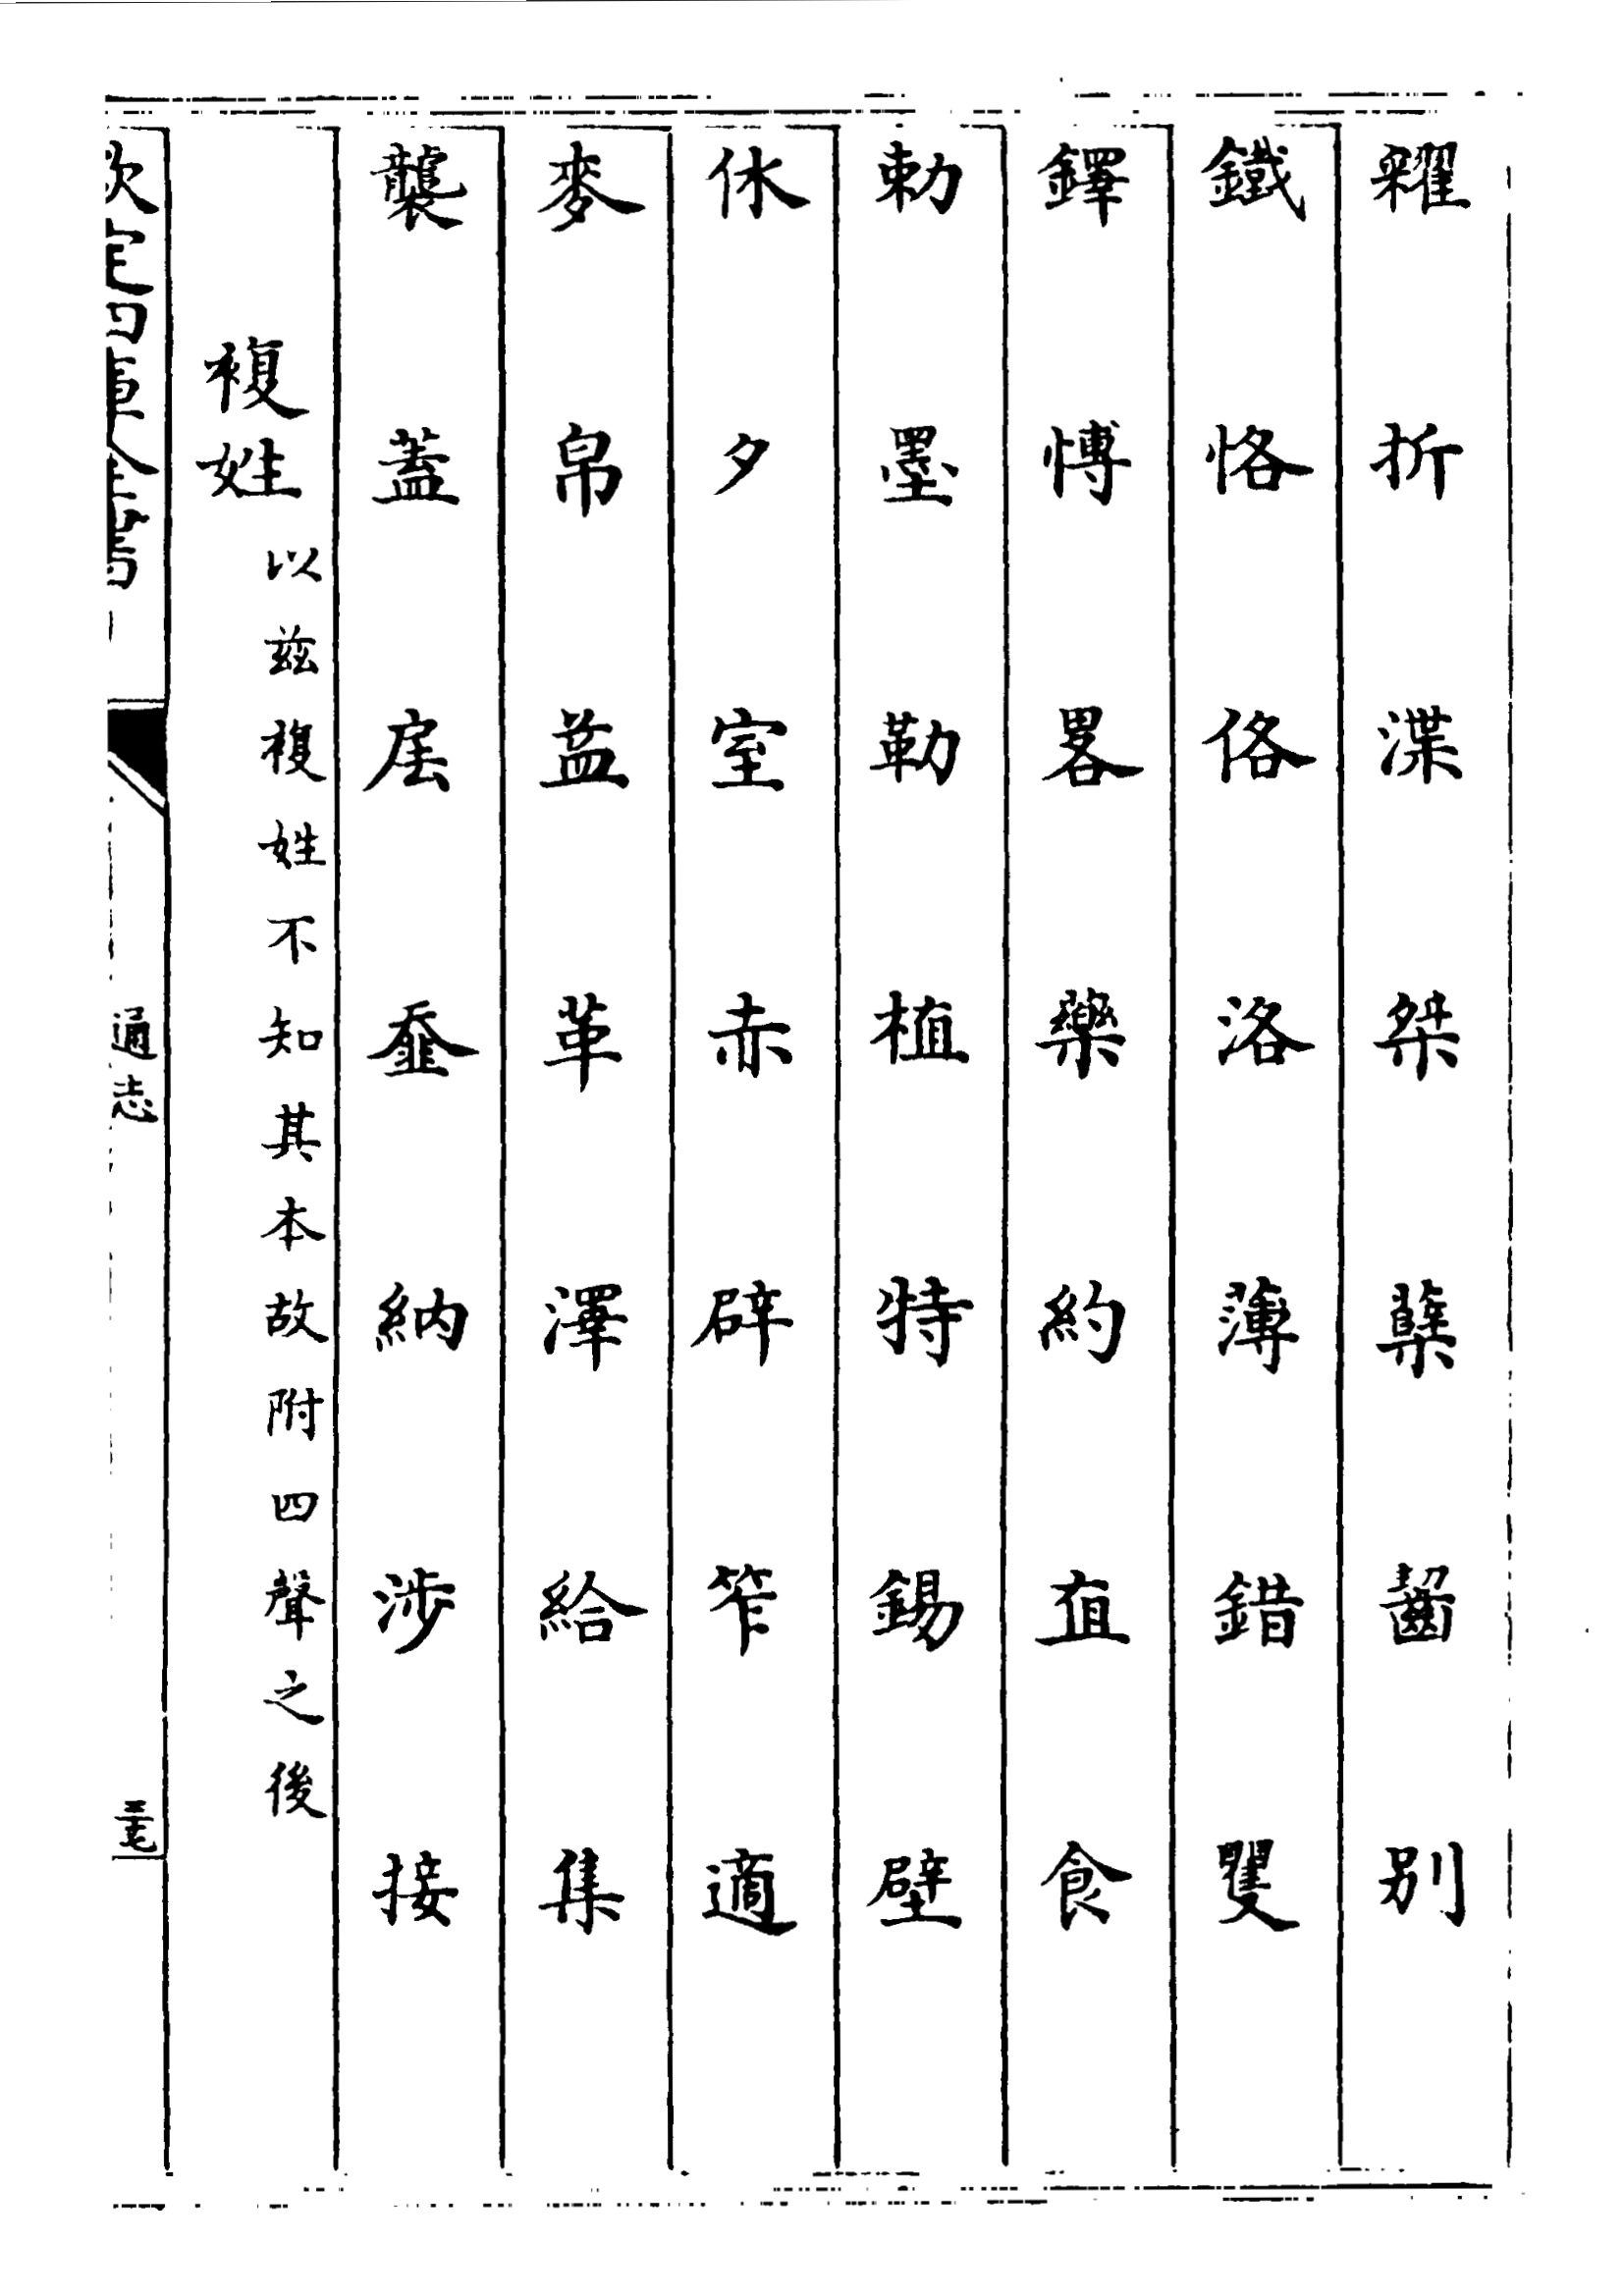 糴折渫桀蘖齧別
鐵恪佫洛薄錯㕠
鐸愽畧藥約直食
勅墨勒植特錫壁
休夕室赤辟笮適
麥帛益革澤給集
襲蓋㕎納涉接
複姓以兹複姓不知其本故附四聲之後
欽定四庫全書
通志
三十七